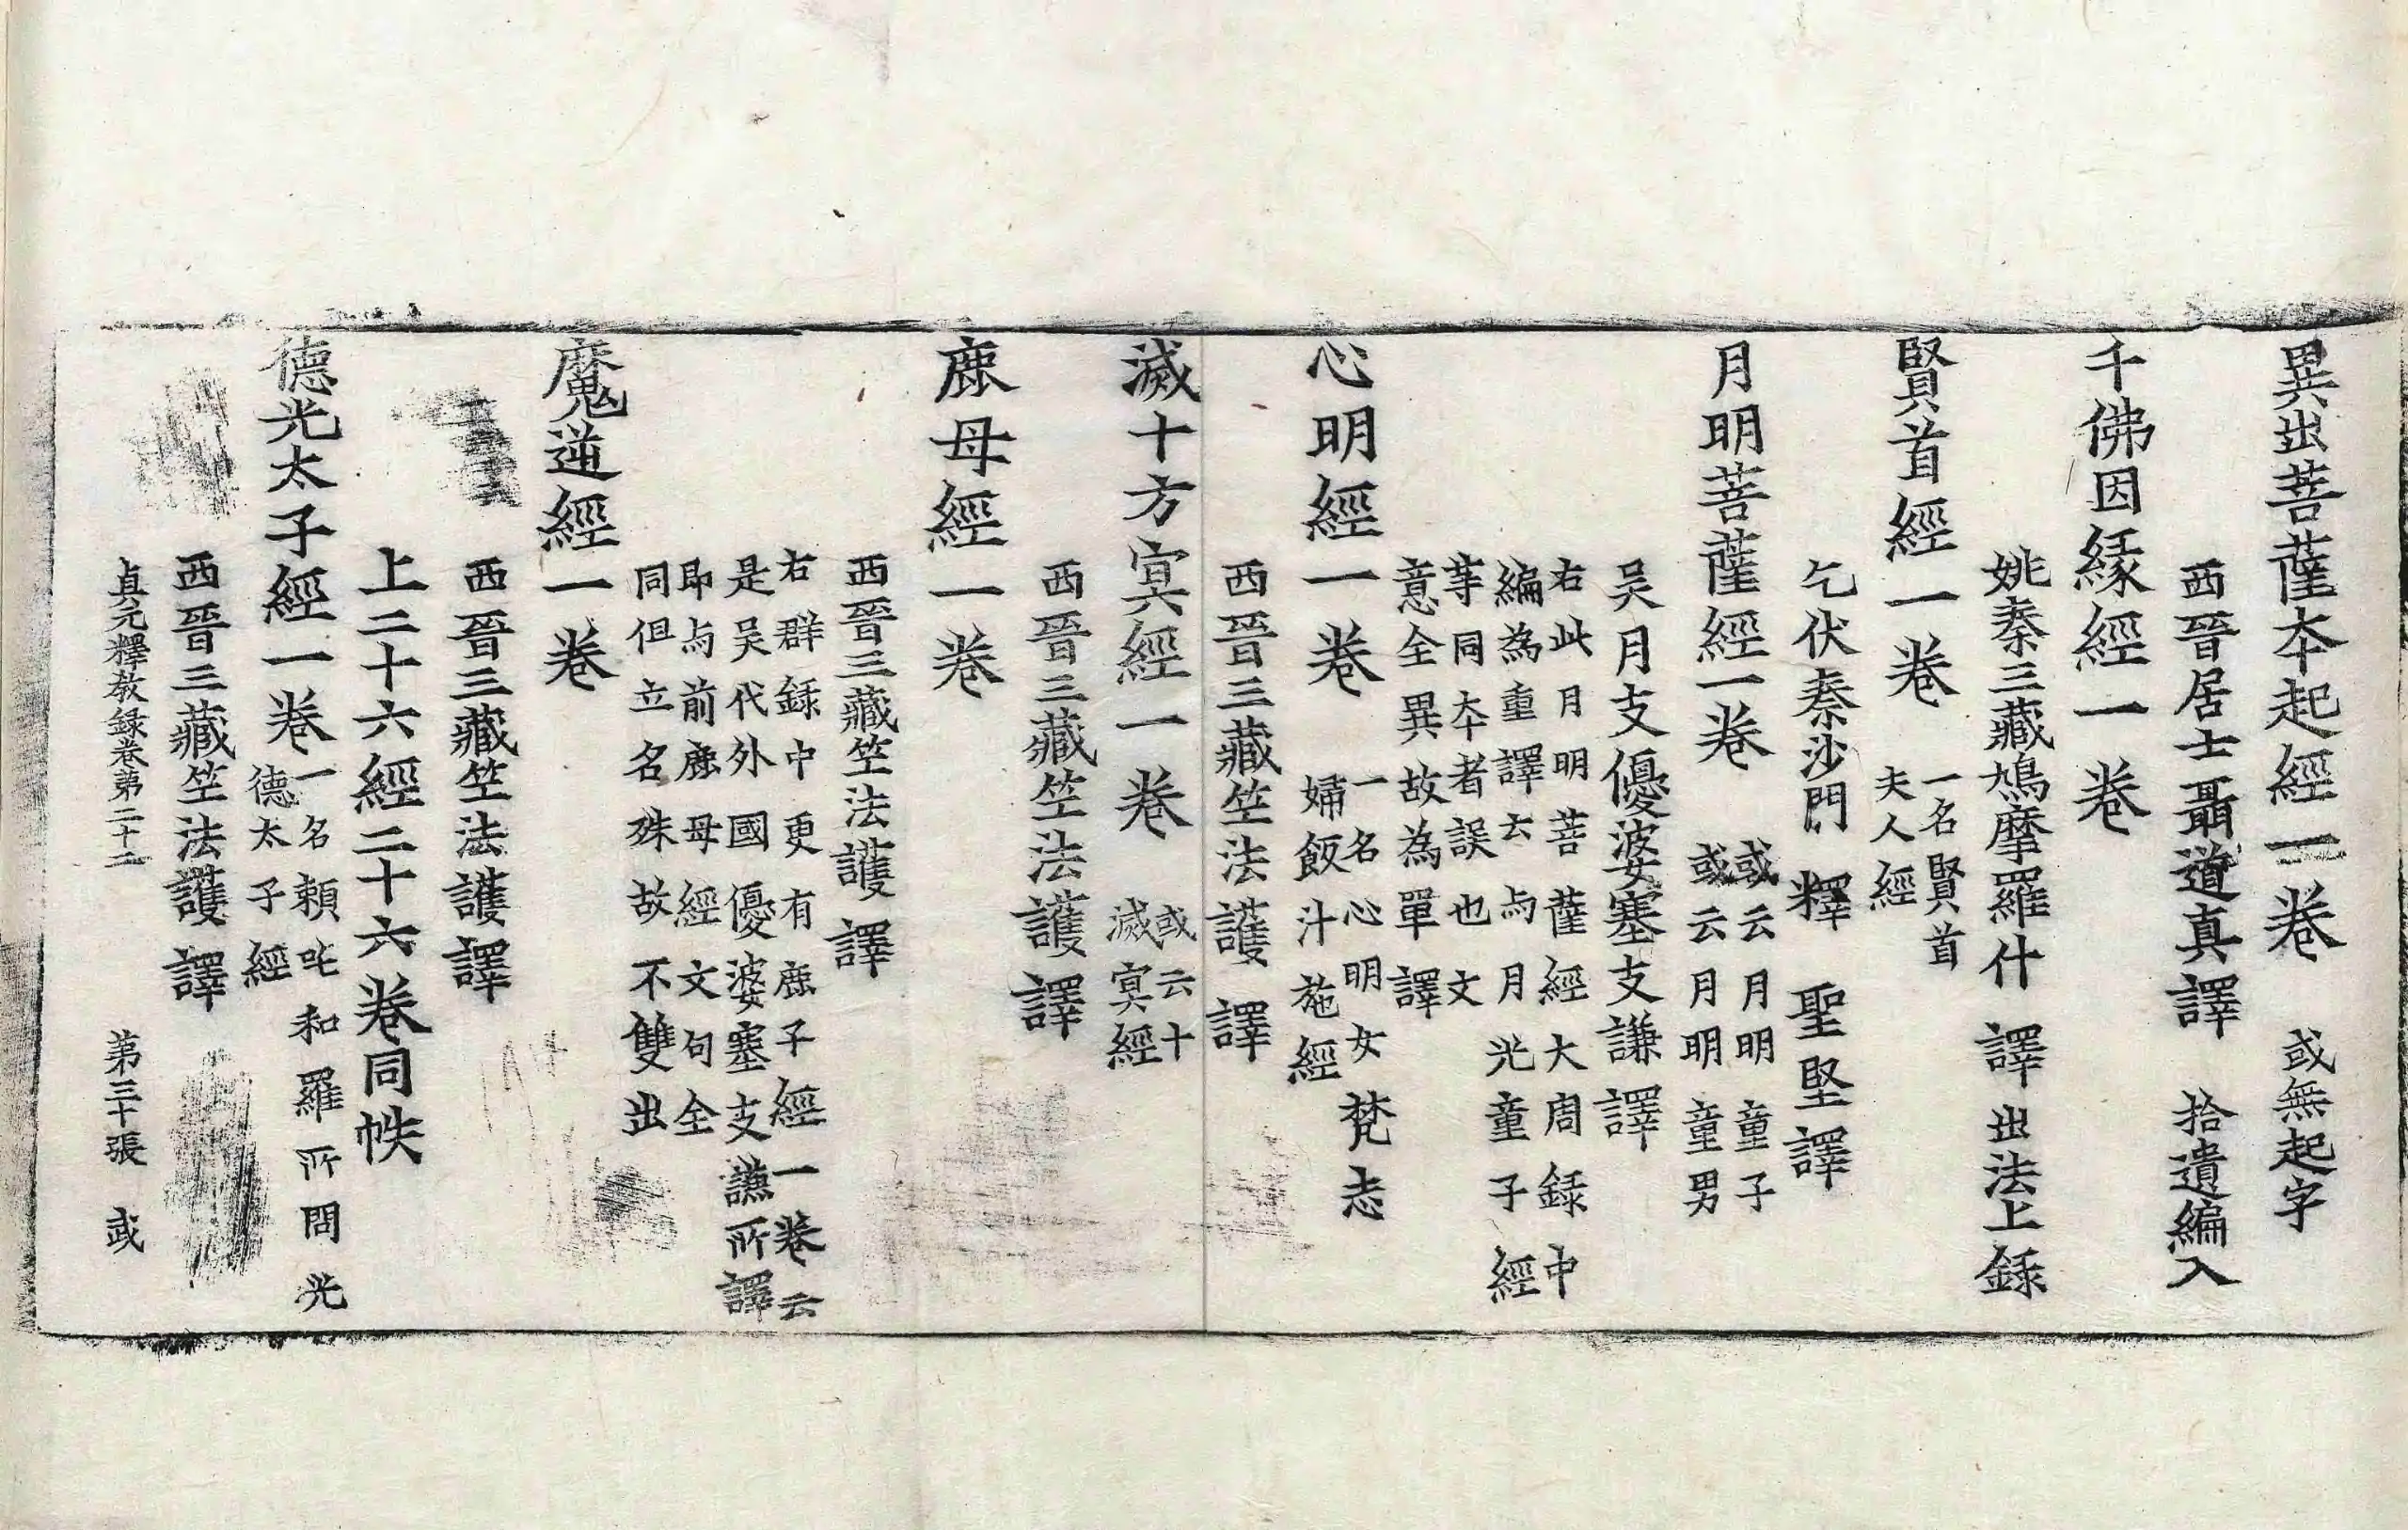 異出菩薩本起經一卷 或無起字
西晉居士聶道真譯 拾遺編入
千佛因緣經一卷
姚秦三藏鳩摩羅什譯 出法上録
賢首經一卷 一名賢首
夫人經
乞伏秦沙門釋聖堅譯
月明菩薩經一卷 或云月明童子
或云月明童男
吴月支優婆塞支謙譯
右此月明菩薩經大周録中
編為重譯云与月光童子經
等同本者誤也文
意全異故為單譯
心明經一卷 一名心明女梵志
婦飯汁施經
西晉三藏竺法護譯
滅十方冥經一卷 或云十
滅冥經
西晉三藏竺法護譯
鹿母經一卷
西晉三藏竺法護譯
右群録中更有鹿子經一卷云
是吴代外國優婆塞支謙所譯
即与前鹿母經文句全
同但立名殊故不雙出
魔逆經一卷
西晉三藏竺法護譯
上二十六經二十六卷同帙
德光太子經一卷 一名賴吒和羅所問光
德太子經
西晉三藏竺法護譯
貞元釋教録卷第二十二 第三十張 武